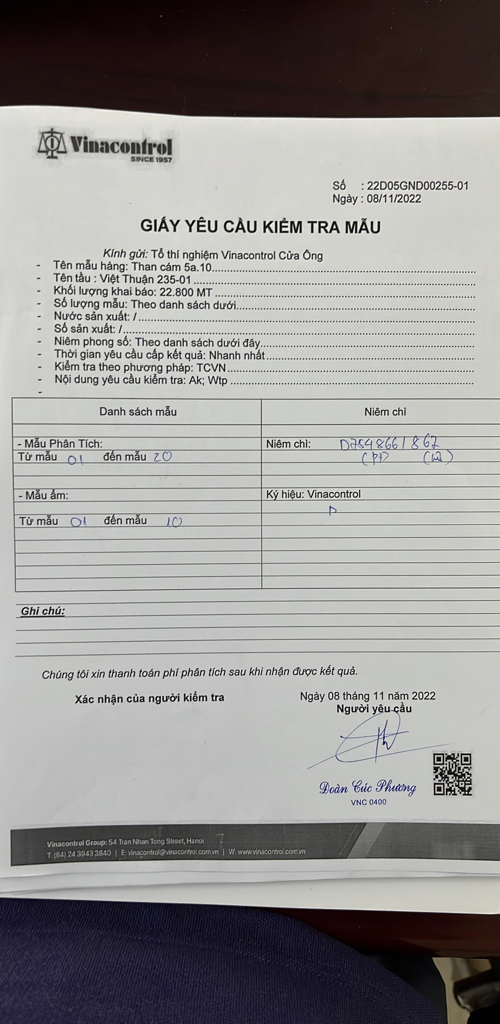 Vinacontrol
SINCE 1957
Số : 22D05GND00255-01
Ngày : 08/11/2022
GIẤY YÊU CẦU KIỂM TRA MẪU
Kính gửi: Tổ thí nghiệm Vinacontrol Cửa Ông
- Tên mẫu hàng: Than cám 5a.10
- Tên tầu : Việt Thuận 235-01
- Khối lượng khai báo: 22.800 MT
- Số lượng mẫu: Theo danh sách dưới
- Nước sản xuất: /
- Số sản xuất: /
- Niêm phong số: Theo danh sách dưới đây
- Thời gian yêu cầu cấp kết quả: Nhanh nhất
- Kiểm tra theo phương pháp: TCVN
- Nội dung yêu cầu kiểm tra: Ak; Wtp
-
Danh sách mẫu Niêm chì
- Mẫu Phân Tích: Niêm chì: D7548661 862
Từ mẫu 01 đến mẫu 20 (PT)
- Mẫu ẩm: Ký hiệu: Vinacontrol
D
Từ mẫu 01 đến mẫu 10
Ghi chú:
Chúng tôi xin thanh toán phí phân tích sau khi nhận được kết quả.
Xác nhận của người kiểm tra Ngày 08 tháng 11 năm 2022
Người yêu cầu
Đoàn Cúc Phương
VNC 0400
Vinacontrol Group: 54 Tran Nhan Tong Street, Hanoi
T. (84) 24 3943 3840 | E: vinacontrol@vinacontrol.com.vn | W: www.vinacontrol.com.vn